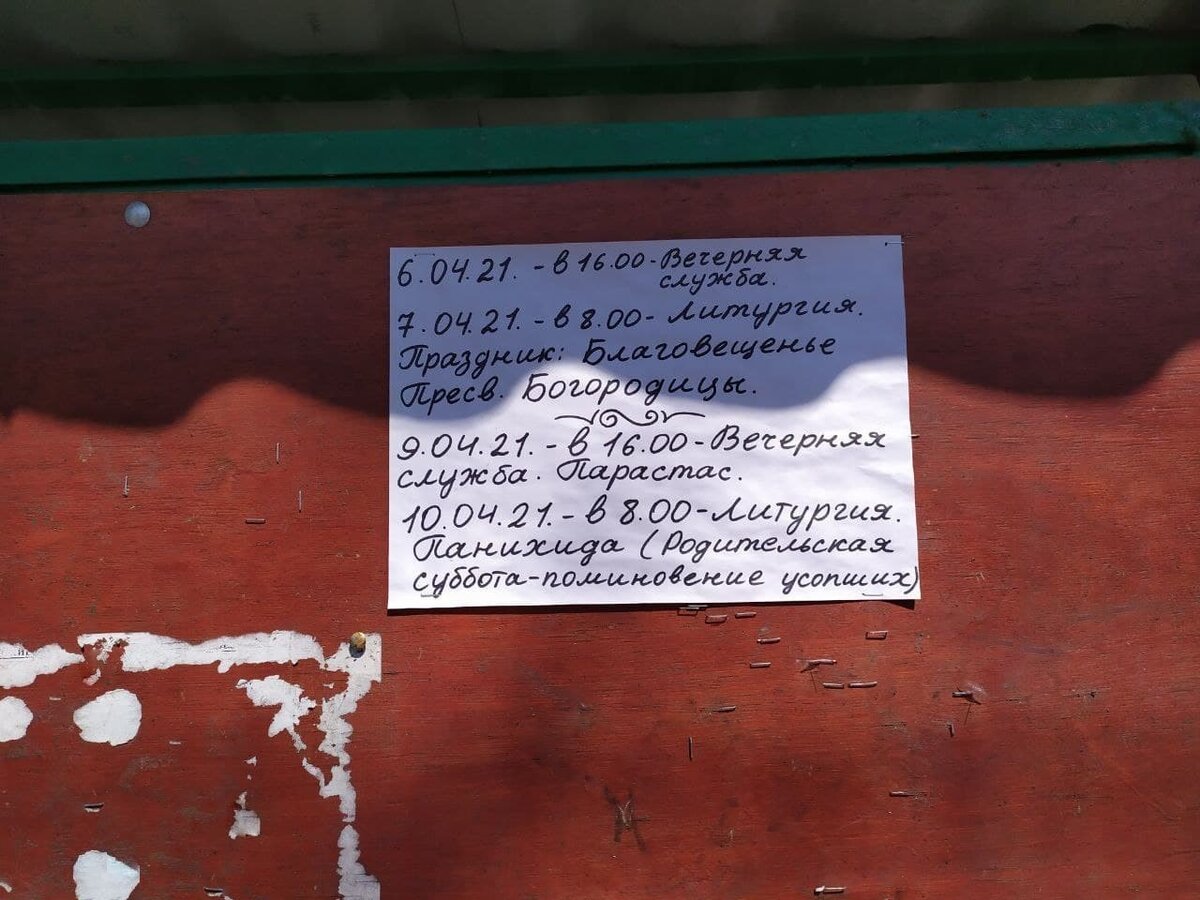 6.04.21. - в 16.00 - Вечерняя
служба.
7.04.21. - в 8.00 - Литургия.
Праздник: Благовещенье
Пресв. Богородицы.
9.04.21. - в 16.00 - Вечерняя
служба. Парастас.
10.04.21. - в 8.00 - Литургия.
Панихида (Родительская
суббота-поминовение усопших)